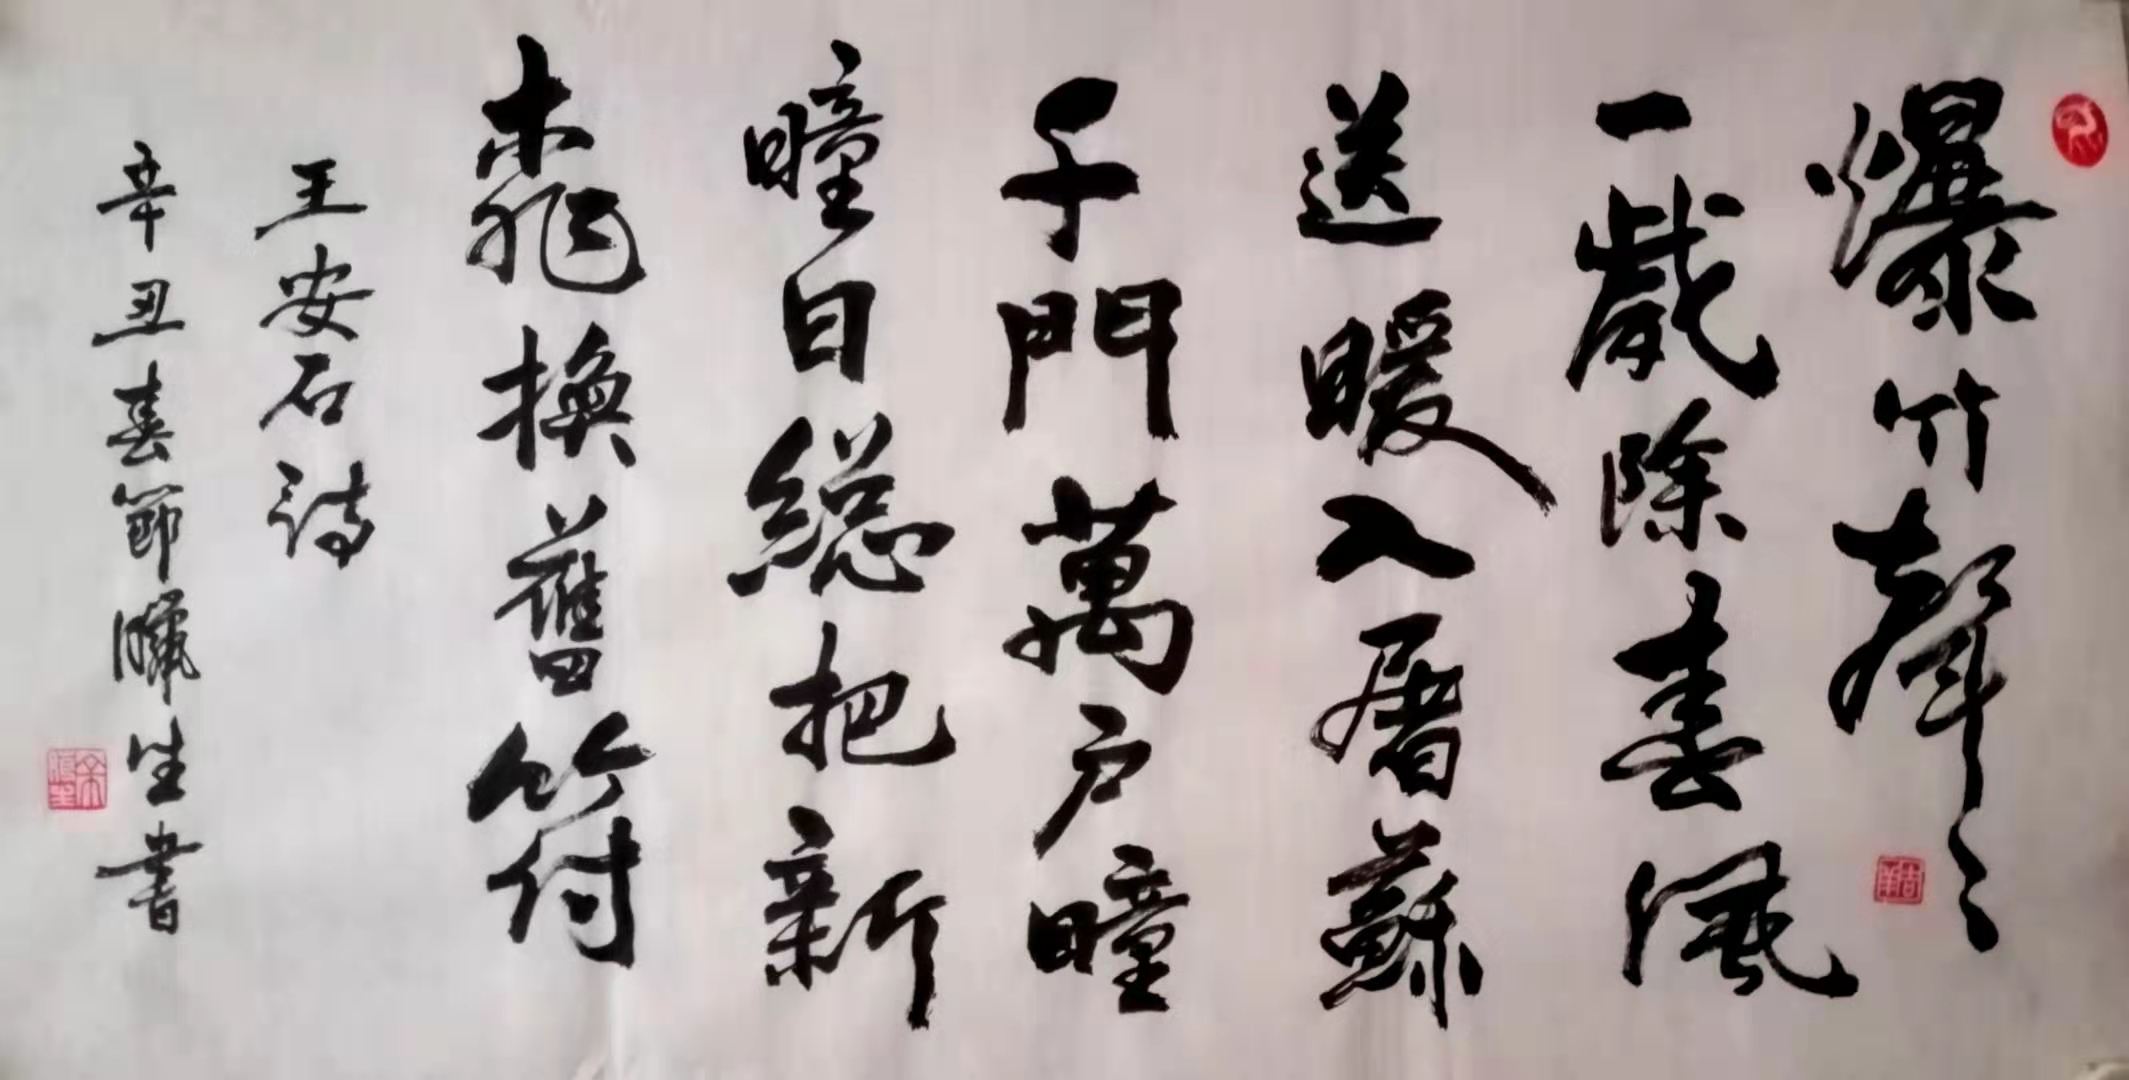 爆竹聲〻
一歲除春風
送暖入屠蘇
千門萬户曈
曈日総把新
桃換舊符
王安石詩
辛丑春節生書